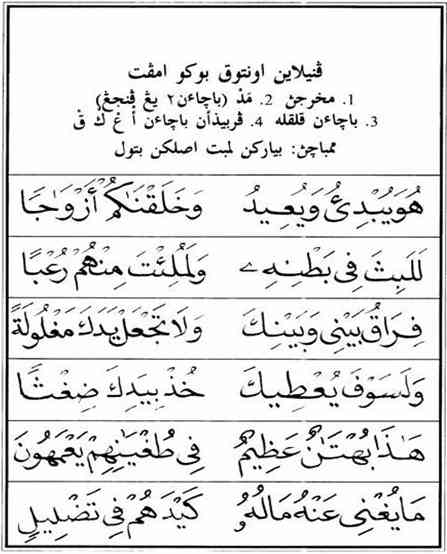 ڤنيلاين اونتوق بوكو امڤت
1. مخرجڽ 2. مَدْ (باچاءن٢ يڠ ڤنجڠ)
3. باچاءن قلقله 4. ڤربيذاٴن باچاءن أ غ ك ق
ممباچڽ: بياركن لمبت اصلكن بتول
هُوَيُبْدِئُ وَيُعِيدُ وَخَلَقْنَاكُمْ أَزْوَاجًا
لَلَبِثَ فِى بَطْنِهِۦ وَلَمُلِئْتَ مِنْهُمْ رُعْبًا
فِرَاقُ بَيْنِى وَبَيْنِكَ وَلَا تَجْعَلْ يَدَكَ مَغْلُولَةً
وَلَسَوْفَ يُعْطِيكَ خُذْ بِيَدِكَ ضِغْثًا
هَٰذَا بُهْتَٰنٌ عَظِيمٌ فِى طُغْيَٰنِهِمْ يَعْمَهُونَ
مَا يُغْنِى عَنْهُ مَالُهُۥ كَيْدَهُمْ فِى تَضْلِيلٍ